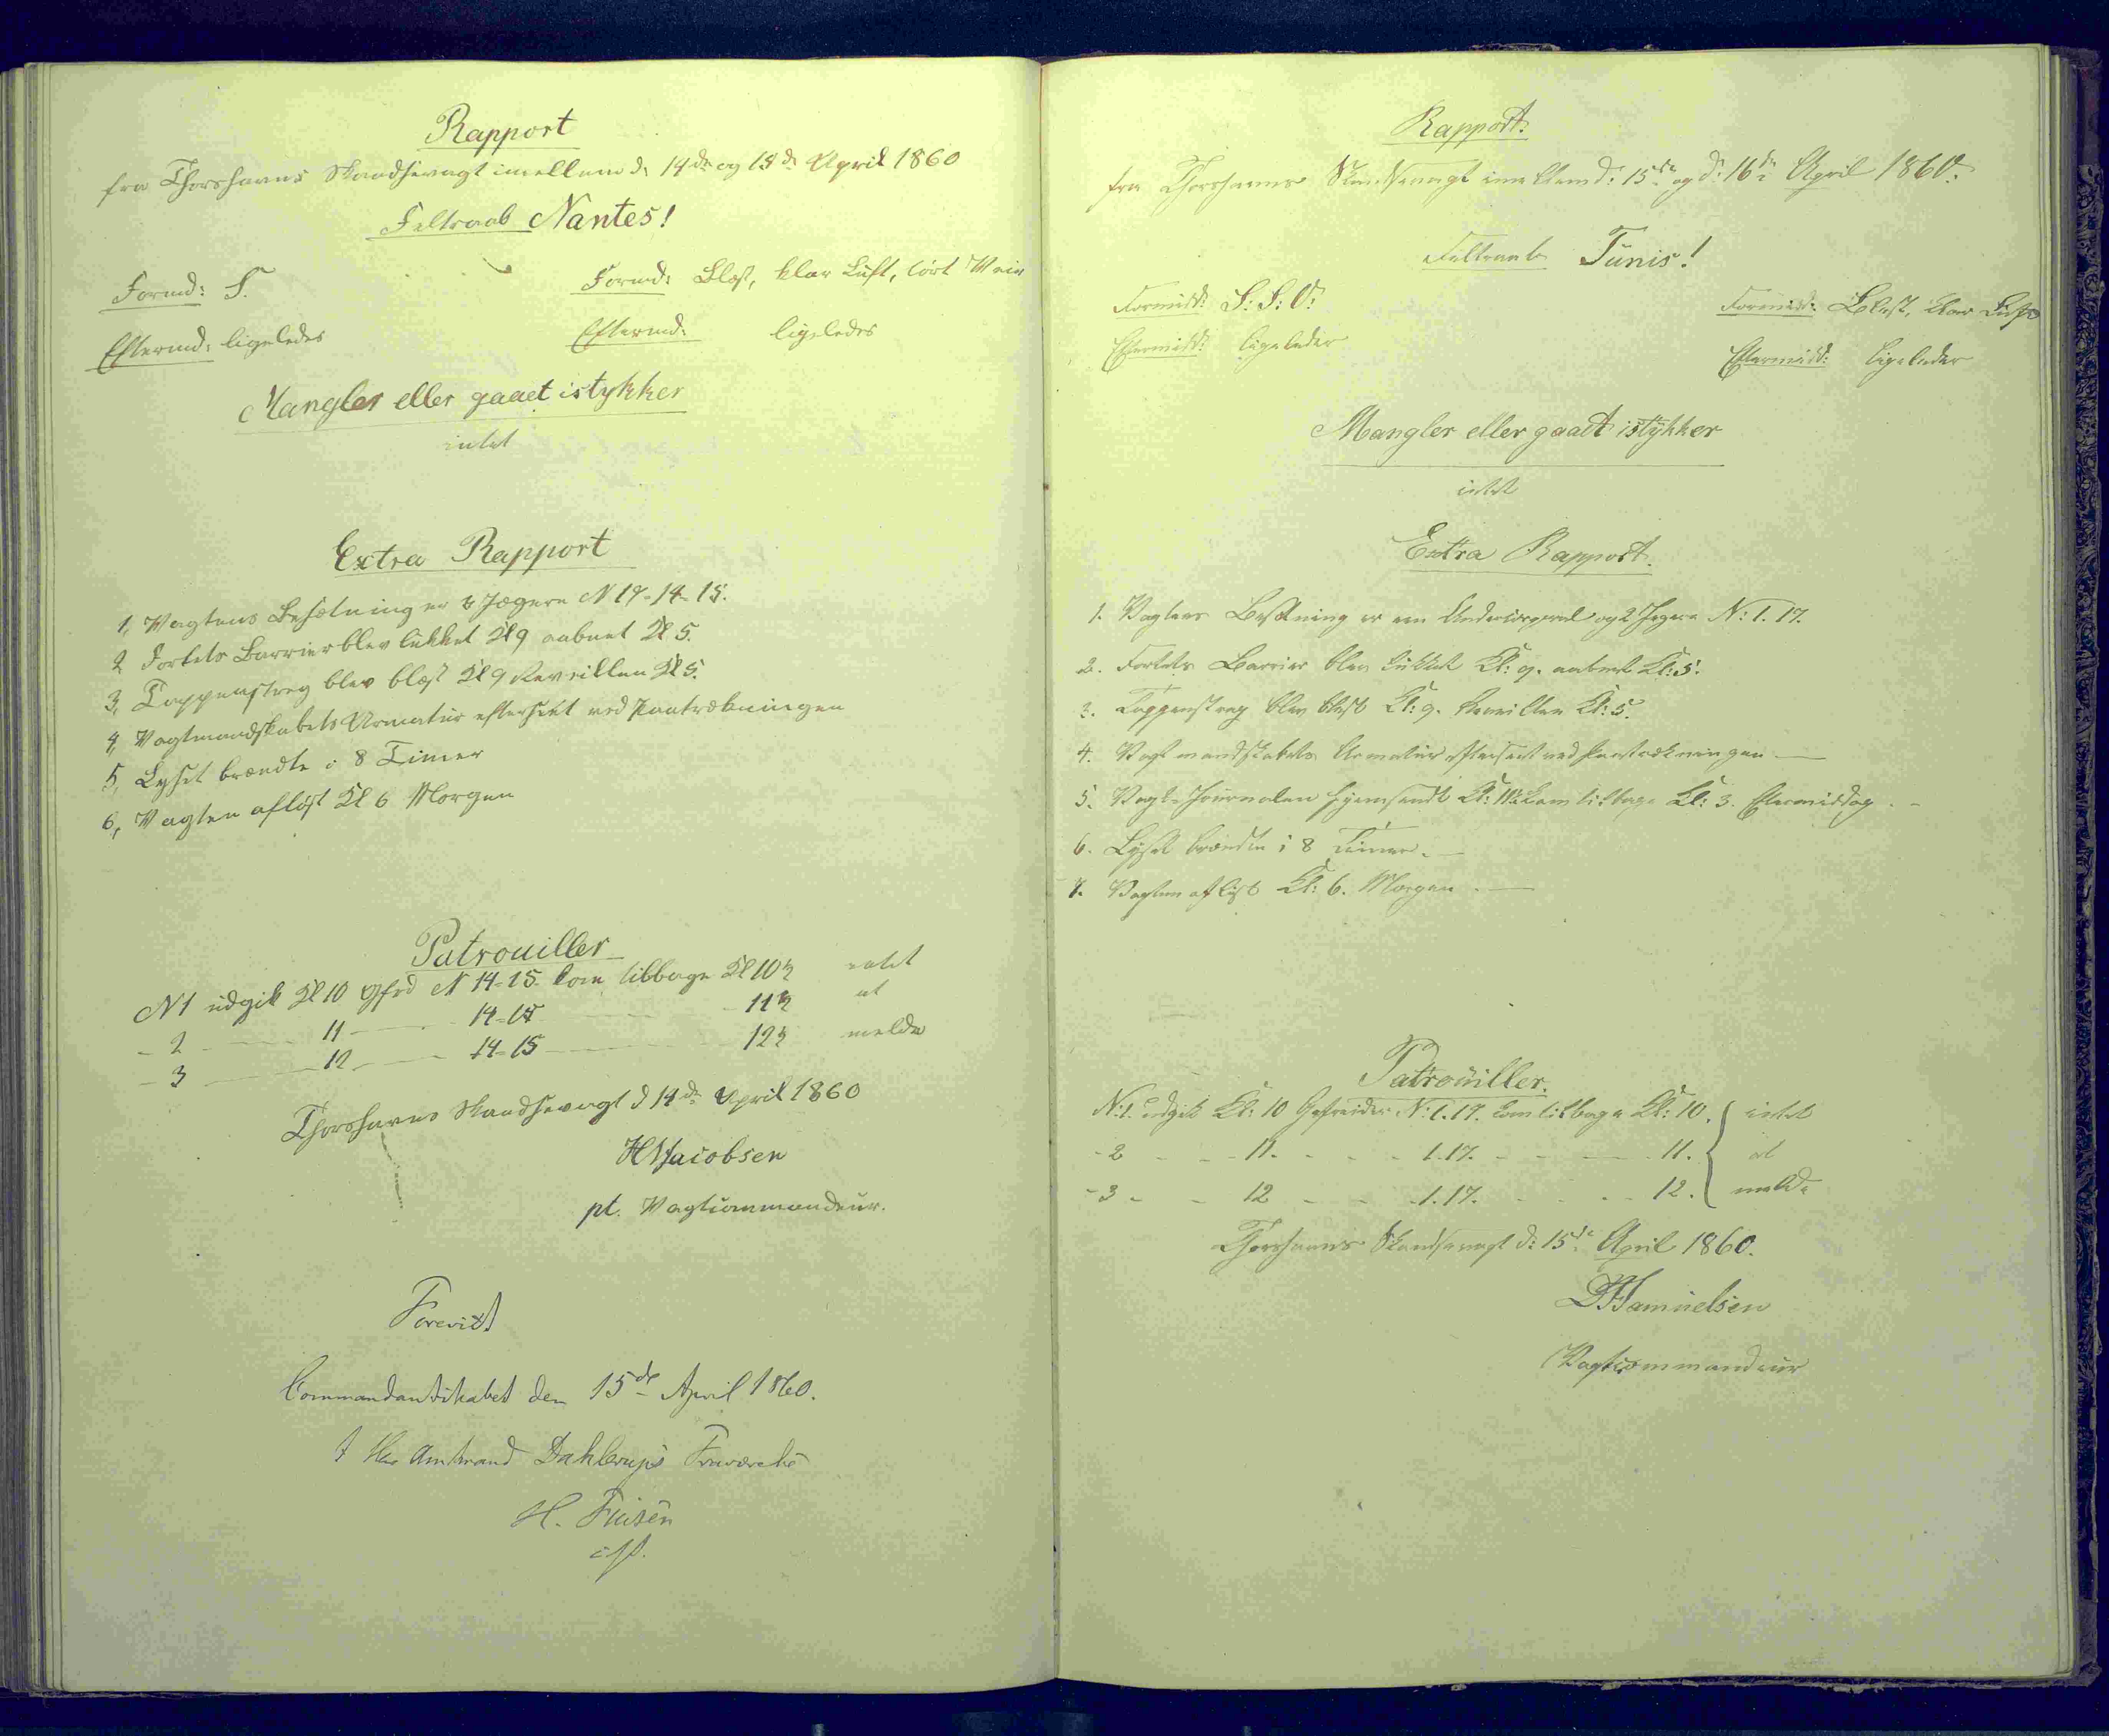 Rapport
fra Thorshavns Skandsevagt imellem d. 14de og 15de April 1860
Feltraab Nantes!
Formd: S.
Formd: Blæst, klar Luft, tört Veir
Eftermd: ligeledes
Eftermd: ligeledes
Mangler eller gaaet istykker
intet
Extra Rapport
1, Vagtens Besætning er 3 Jægere N 17-14-15.
2 Fortets Barrier blev lukket Kl 9 aabnet Kl 5.
3, Tappenstreg blev blæst Kl 9 Reveillen Kl 5.
4, Vagtmandskabets Armatur efterseet ved Paatrækningen
5, Lyset brændte i 8 Timer
6, Vagten aflöst Kl 6 Morgen
Patrouiller
N 1 udgik Kl 10 Gfrd N 14-15. kom tilbage Kl 10½ intet
- 2 11 14-15 11½ at
- 3 12 14-15 12½ melde
Thorshavns Skandsevagt d 14de April 1860
HJacobsen
pt. Vagtcommandeur.
Forevist
Commandantskabet den 15de April 1860.
I Hr Amtmand Dahlerups Fraværelse
H. Finsen
cst.
Rapport.
fra Thorshavns Skandsevagt imellem d: 15de og d: 16de April 1860.
Feltraab Tunis!
Formidd: S:S:O:
Formidd: Blæst, klar Luft
Eftermidd: ligeledes
Eftermidd: ligeledes
Mangler eller gaaet istykker
intet
Extra Rapport.
1. Vagtens Besætning er een Undercorporal og 2 Jægere N: 1. 17.
2. Fortets Barrier blev lukket Kl: 9. aabnet Kl: 5.
3. Tappenstreg blev blæst Kl: 9. Reveillen Kl: 5.
4. Vagtmandskabets Armatur efterseet ved Paatrækningen —
5. Vagt-Journalen hjemsendt Kl: 11½ kom tilbage Kl: 3. Eftermiddag. -
6. Lyset brændte i 8 Timer. —
7. Vagten aflöst Kl: 6. Morgen. —
Patrouiller.
N: 1. udgik Kl: 10 Gefreider N: 1. 17. kom tilbage Kl: 10. intet
- 2 - - 11. - - - 1. 17. - - - 11. at
- 3 - - 12 - - 1. 17. - - - 12. melde
Thorshavns Skandsevagt d: 15de April 1860.
Samuelsen
Vagtcommandeur